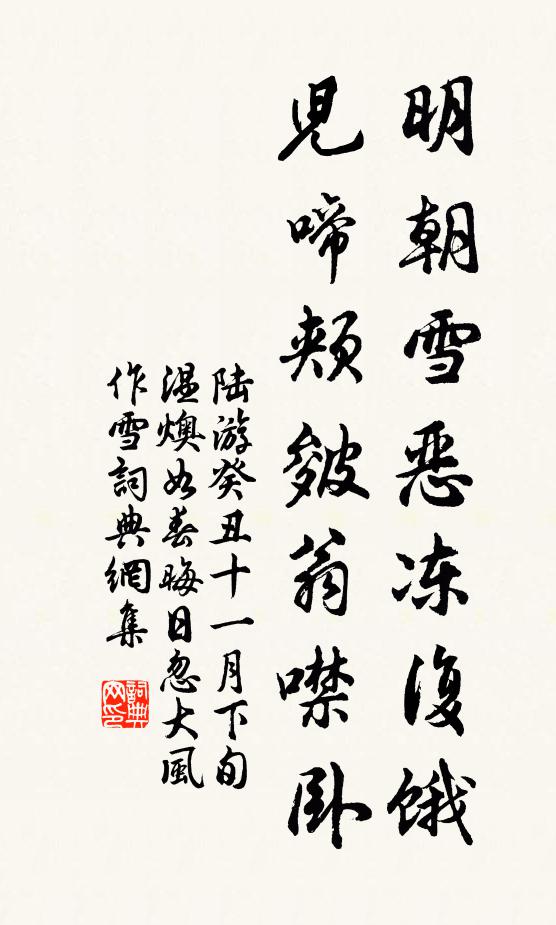 明朝雪恶冻復饿
児啼頬皴翁噤卧
陆游癸丑十一月下旬
温燠如春晦日忽大風
作雪詞典網集
詞典
网印